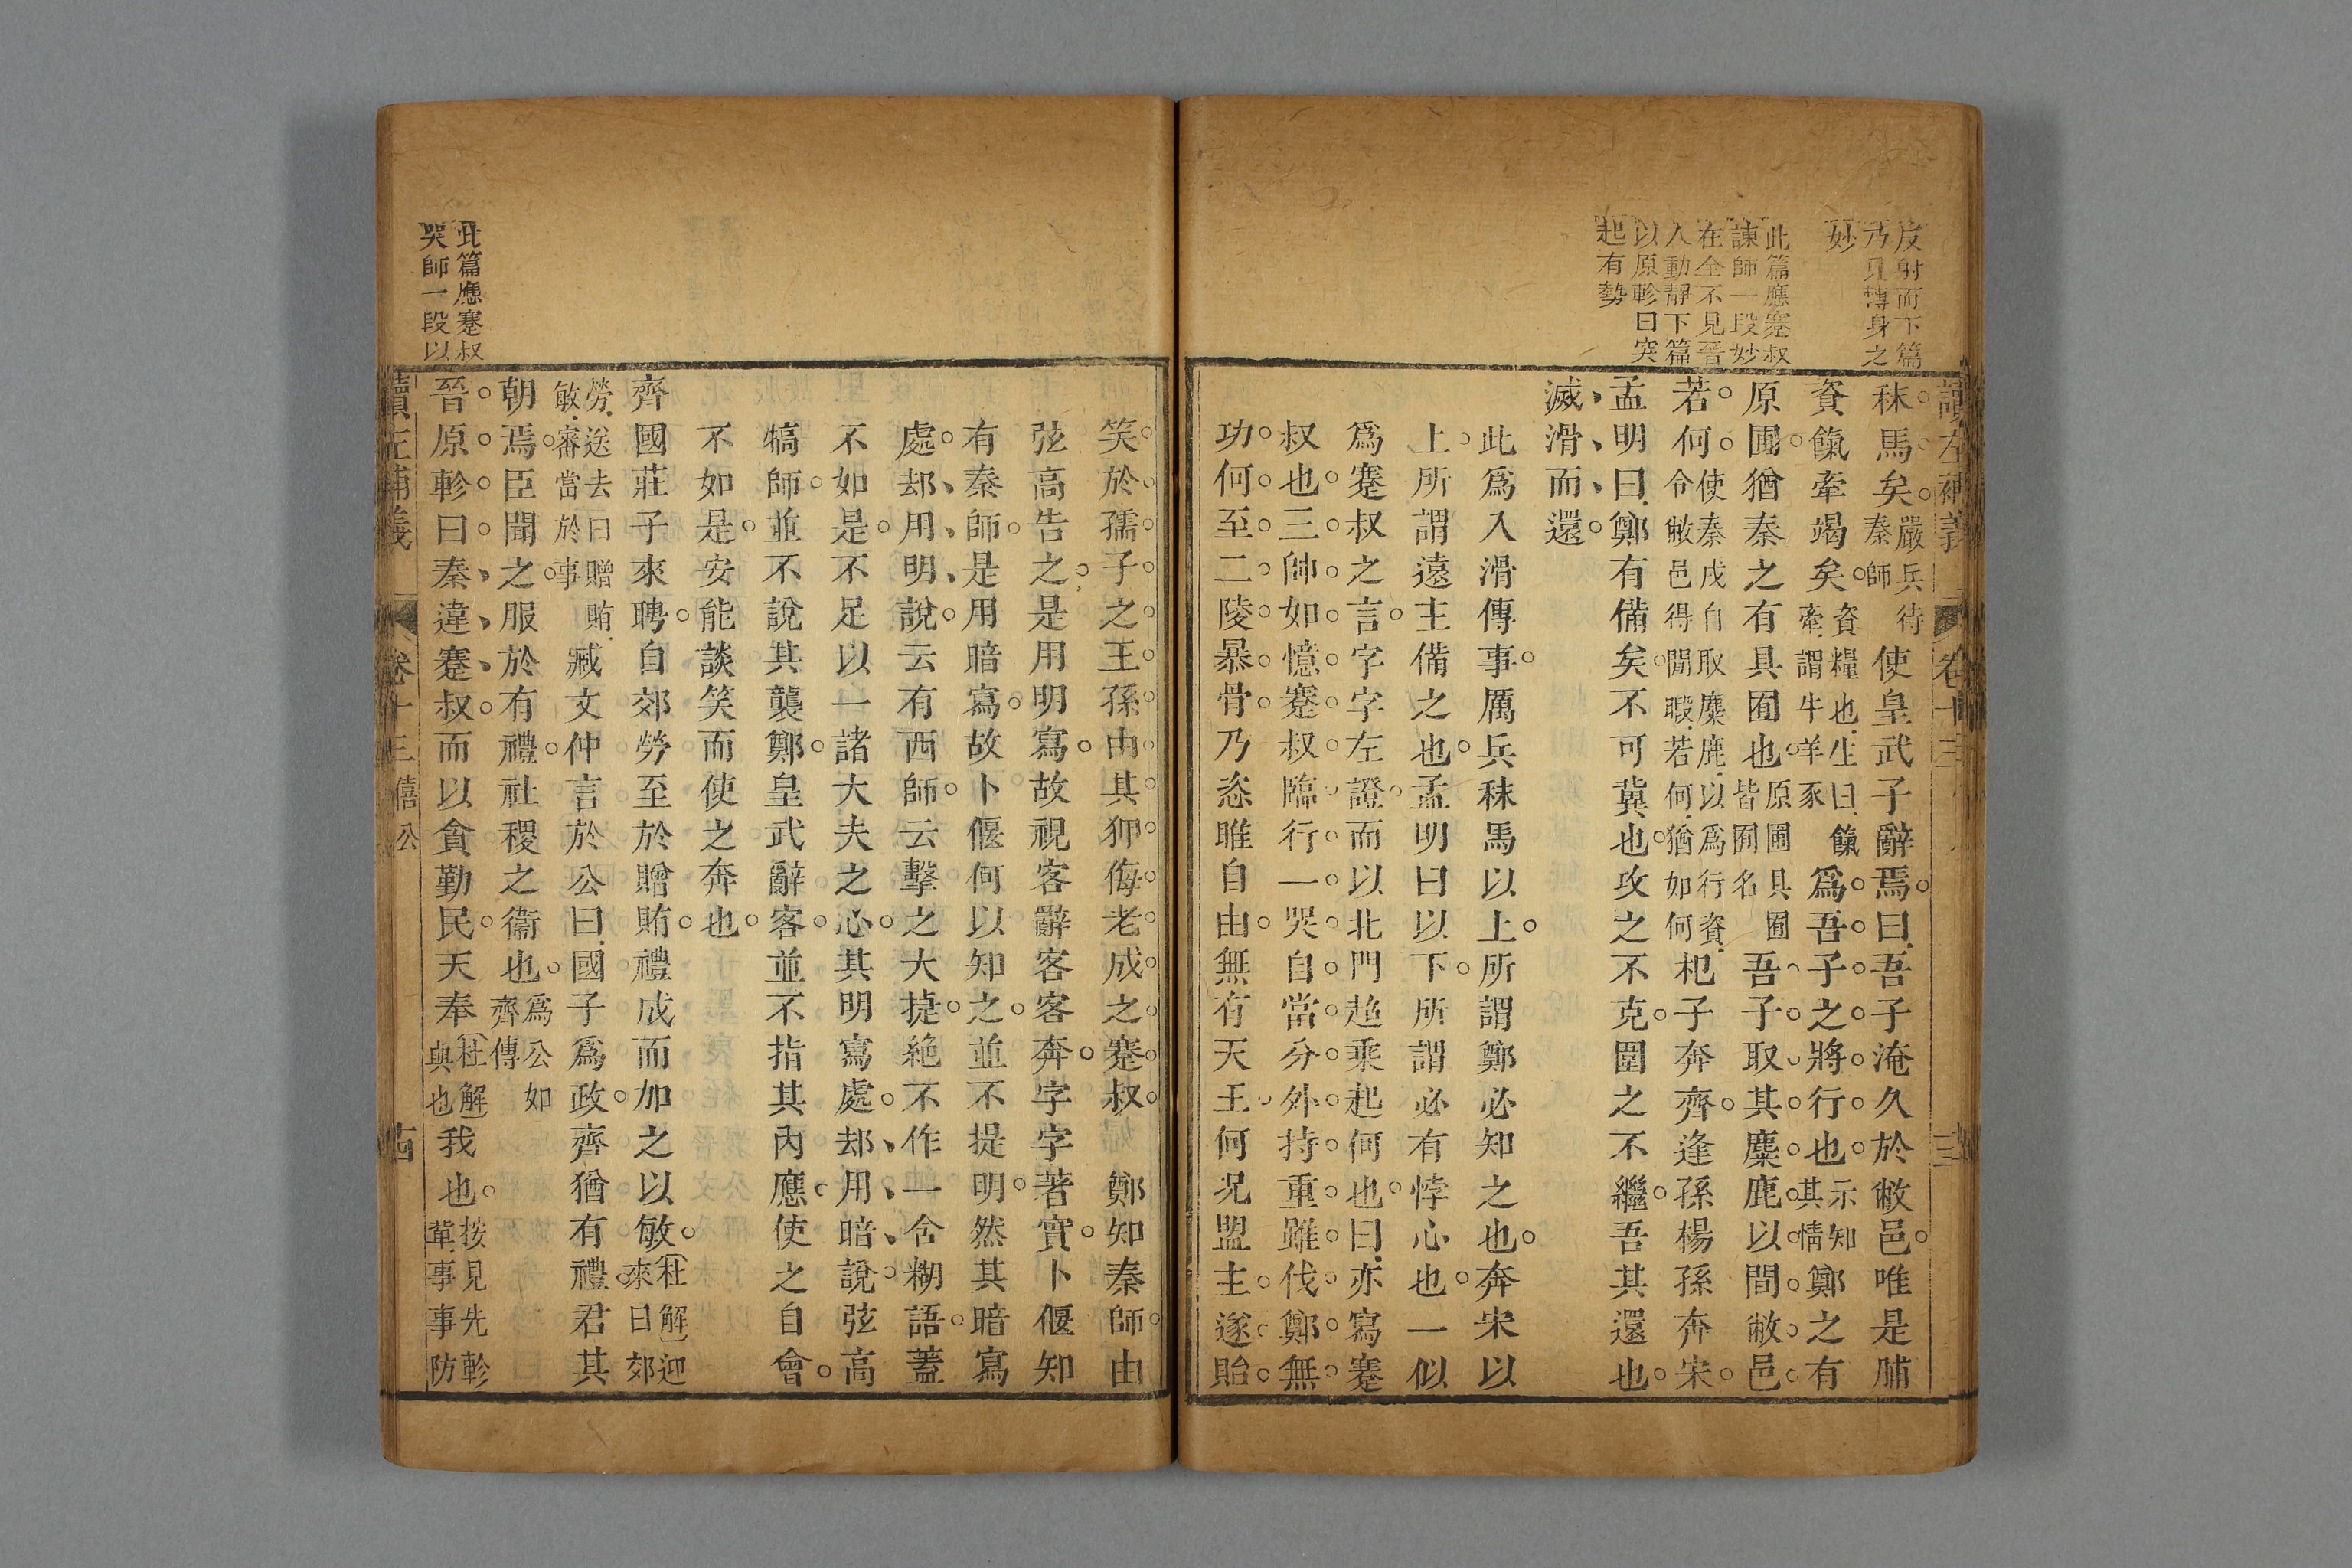 反射而下篇
乃見摶身之
妙
此篇應蹇叔
諫師一段妙
在全不見晉
人動靜下篇
以原軫曰突
起有勢
讀左補義 卷十三
秣馬矣嚴兵待秦師使皇武子辭焉曰吾子淹久於敝邑唯是脯
資餼牽竭矣資糧也生曰餼牽謂牛羊豕爲吾子之將行也示知其情鄭之有
原圃猶秦之有具囿也原圃具囿皆囿名吾子取其麋鹿以閒敝邑
若何使秦戌自取麋鹿以爲行資令敝邑得閒暇若何猶如何杞子奔齊逢孫楊孫奔宋
孟明曰鄭有備矣不可冀也攻之不克圍之不繼吾其還也
滅滑而還
此爲入滑傳事厲兵秣馬以上所謂鄭必知之也奔宋以
上所謂遠主備之也孟明曰以下所謂必有悖心也一似
爲蹇叔之言字字左證而以北門趋乘起何也曰亦寫蹇
叔也三帥如憶蹇叔臨行一哭自當分外持重雖伐鄭無
功何至二陵暴骨乃恣睢自由無有天王何况盟主遂貽
笑於孺子之王孫由其狎侮老成之蹇叔 鄭知秦師由
弦高告之是用明寫故視客辭客客奔字字著實卜偃知
有秦師是用暗寫故卜偃何以知之並不提明然其暗寫
處却用明說云有西師云擊之大捷絶不作一含糊語蓋
不如是不足以一諸大夫之心其明寫處却用暗說弦高
犒師並不說其襲鄭皇武辭客並不指其內應使之自會
不如是安能談笑而使之奔也
齊國莊子來聘自郊勞至於贈賄禮成而加之以敏杜解迎來曰郊
勞送去曰贈賄敏審當於事臧文仲言於公曰國子爲政齊猶有禮君其
朝焉臣聞之服於有禮社稷之衞也爲公如齊傳
晉原軫曰秦違蹇叔而以貪勤民天奉杜解與也我也按見先軫舉事事防
讀左補義 卷十三僖公 十四
此篇應蹇叔
哭師一段以